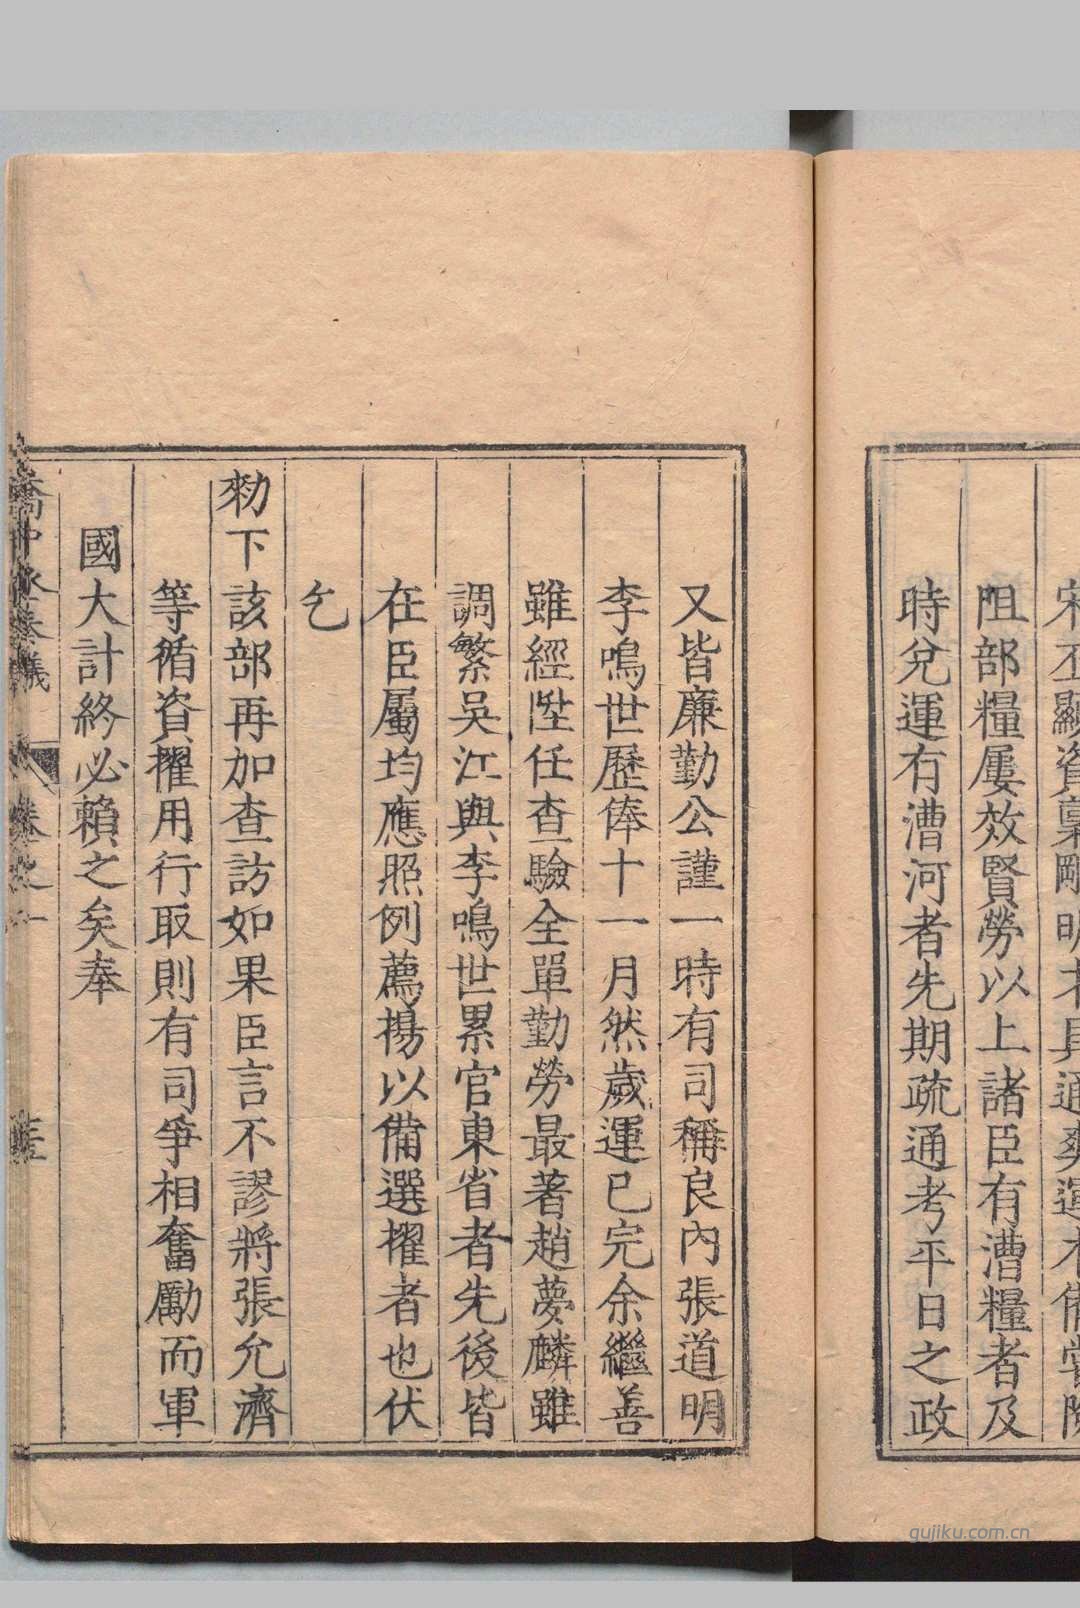 阻部糧屢效賢勞以上諸臣有漕糧者及
時兌運有漕河者先期疏通考平日之政
又皆廉勤公謹一時有司稱良內張道明
李鳴世歷俸十一月然歲運已完余繼善
雖經陞任查驗全單勤勞最著趙夢麟雖
調繁吳江與李鳴世累官東省者先後皆
在臣屬均應照例薦揚以備選擢者也伏
乞
勑下該部再加查訪如果臣言不謬將張允濟
等循資擢用行取則有司爭相奮勵而軍
國大計終必賴之矣奉
qujiku.com.cn